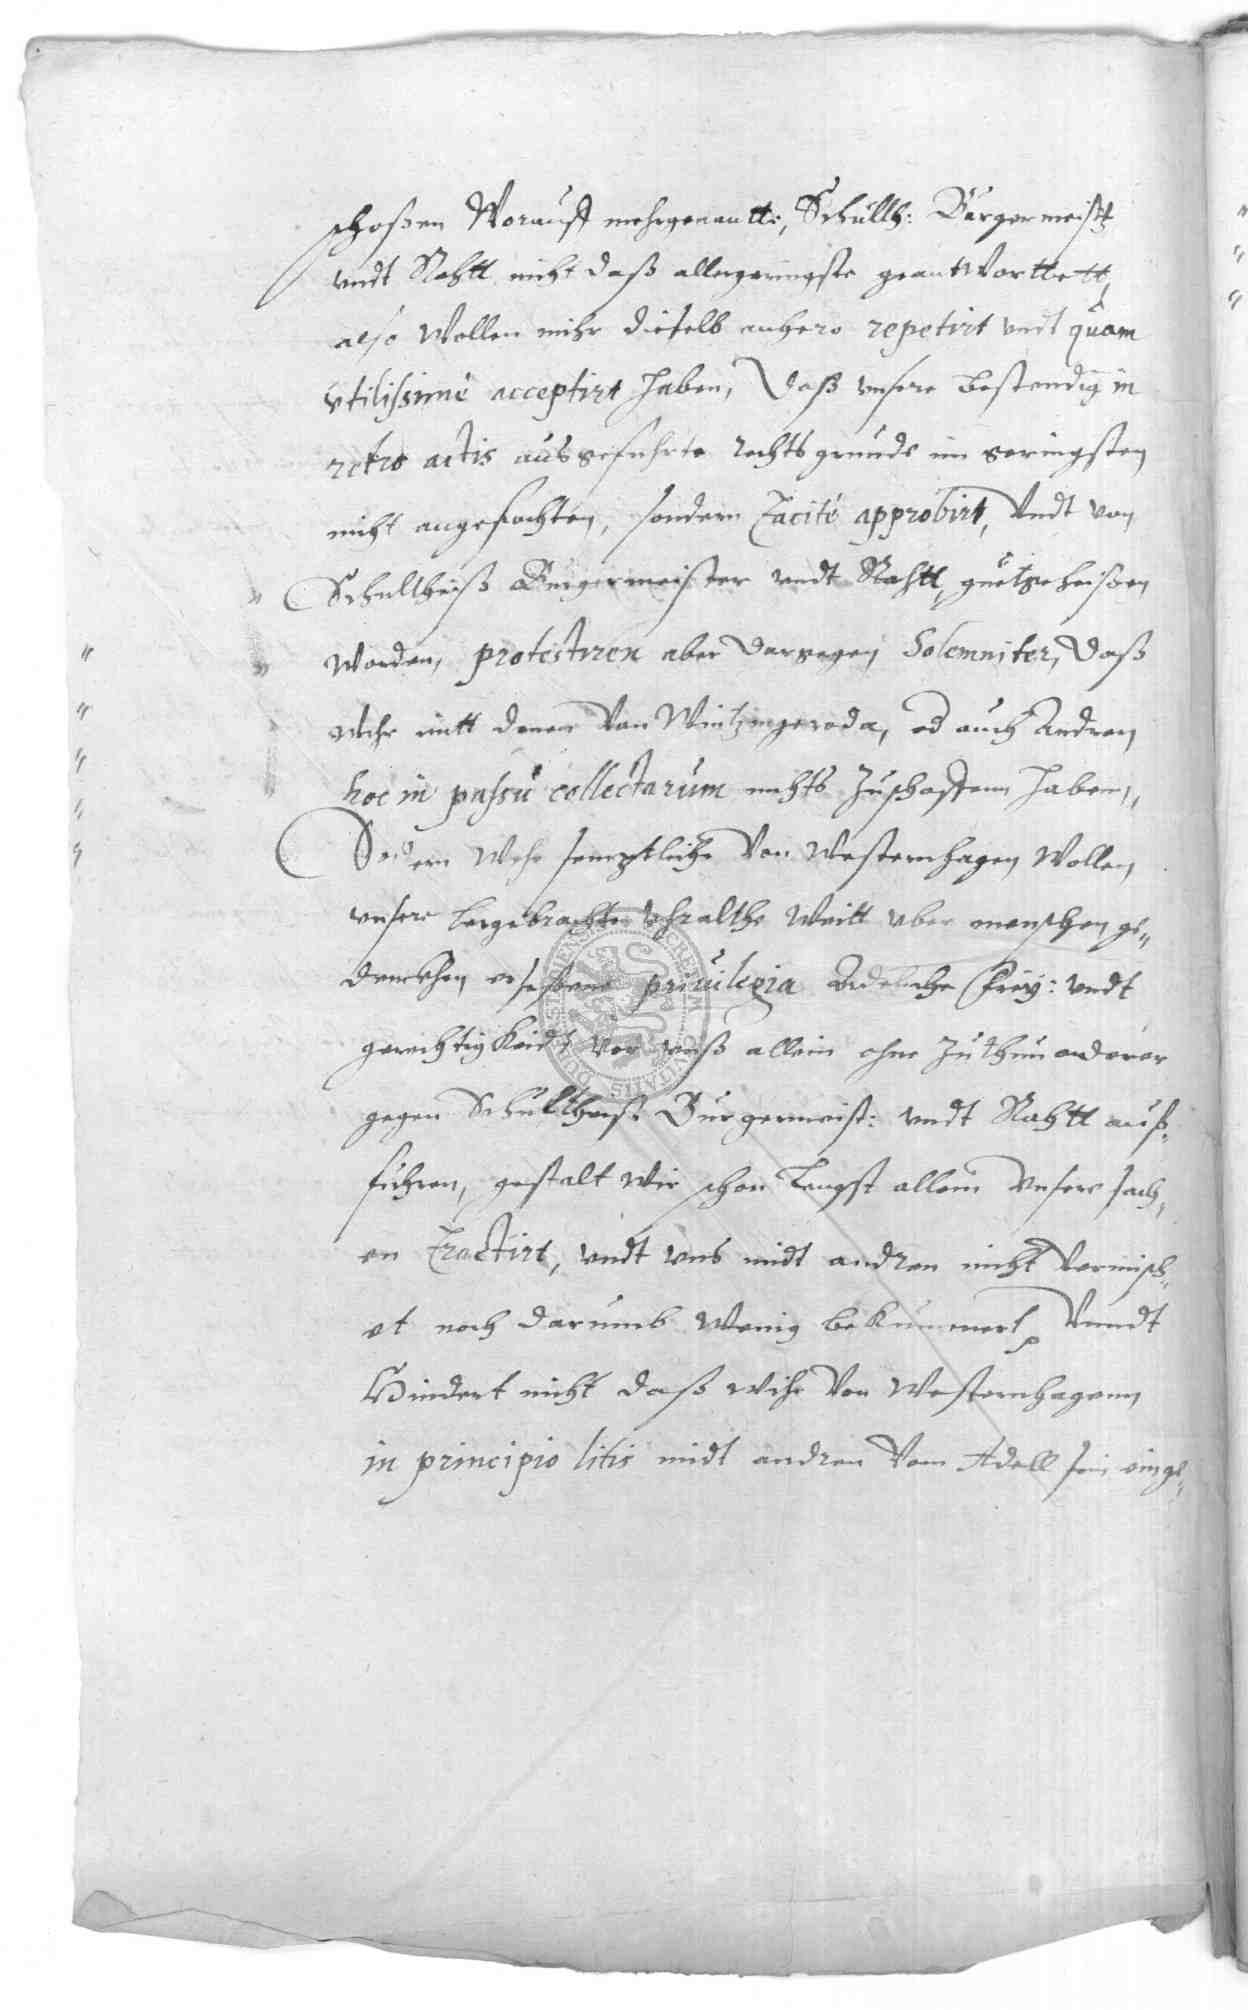 schoßen Worauff mehrgenantte, Schulth: Bürgermeistr
vndt Rahtt nicht daß allergeringste geantWorttett,
also Wollen mihr dieselb anhero repetirt vndt quam
vtilissimè acceptirt haben, Daß vnsere bestendig in
retro actis ausgefuhrte rechts grunde im geringsten
nicht angefochten, sondern tacitè approbirt, Vndt von
Schultheiß Burgermeister vndt Rahtt, guetgeheißen
worden, protestiren aber dargegen Solemniter, Daß
Wihr mitt denen Von Wintzingeroda, od auch Andren
hoc in passu collectarum nichts Zuschaffenn haben,
Sodern Wihr semptliche Von Westernhagen Wollen
vnsere hergebrachte vhralthe Weitt vber menschen ge„
dencken ersessene priuilegia Adeliche Frey: vndt
gerechtigkeidt vor vnß allein ohne Zuthun anderer
gegen Schultheiß Burgermeist: vndt Rahtt auß„
führen, gestalt wir schon Langst allein Vnsere sach„
en tractirt, vndt vns midt andren nicht Vermisch„
et noch darumb Wenig bekummert, Vnndt
Hindert nicht daß wihr Von Westernhagenn
in principio litis midt andren Vom Adell sein einge„